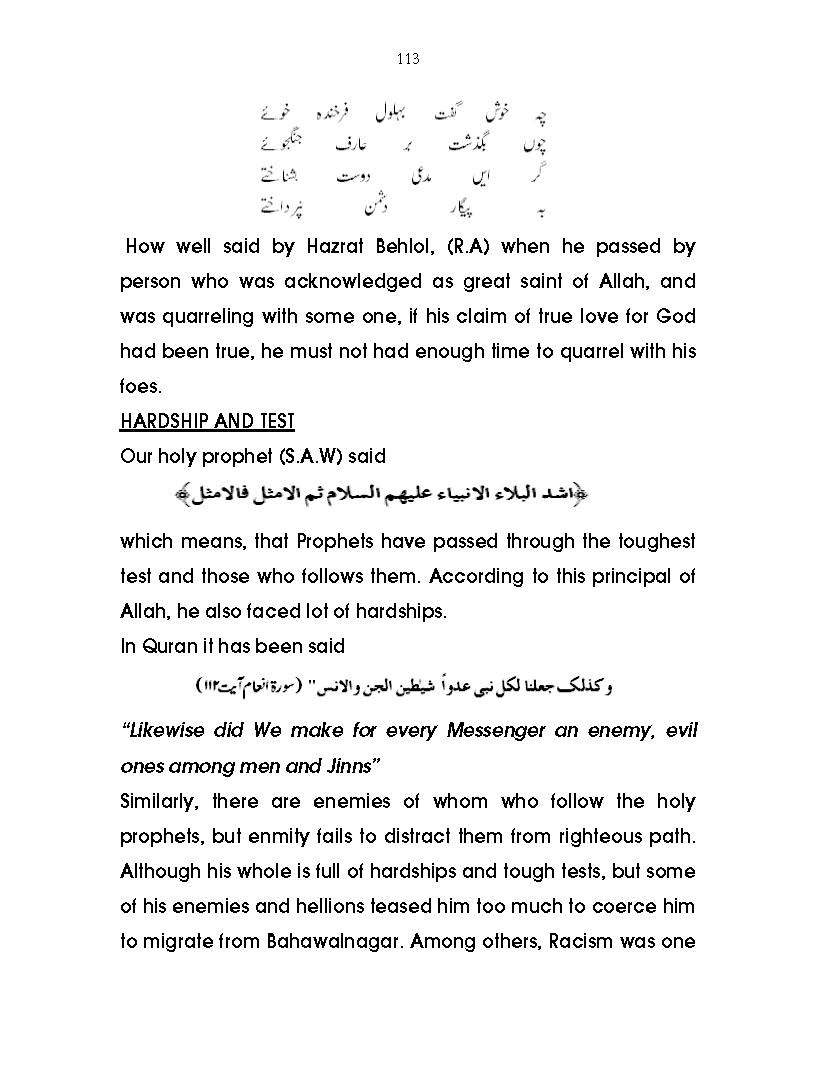 113
چہ خوش گفت بہلول فرخندہ خوئے
چوں بگذشت بر عارف جنگجوئے
گر ایں مدعی دوست بشناختے
بہ پیگار دشمن نپرداختے
How well said by Hazrat Behlol, (R.A) when he passed by
person who was acknowledged as great saint of Allah, and
was quarreling with some one, if his claim of true love for God
had been true, he must not had enough time to quarrel with his
foes.
HARDSHIP AND TEST
Our holy prophet (S.A.W) said
﴿اشد البلاء الانبیاء علیھم السلام ثم الامثل فالامثل﴾
which means, that Prophets have passed through the toughest
test and those who follows them. According to this principal of
Allah, he also faced lot of hardships.
In Quran it has been said
وکذلک جعلنا لکل نبی عدواً شیٰطین الجن والانس" (سورۃ انعام آیت ۱۱۲)
“Likewise did We make for every Messenger an enemy, evil
ones among men and Jinns”
Similarly, there are enemies of whom who follow the holy
prophets, but enmity fails to distract them from righteous path.
Although his whole is full of hardships and tough tests, but some
of his enemies and hellions teased him too much to coerce him
to migrate from Bahawalnagar. Among others, Racism was one